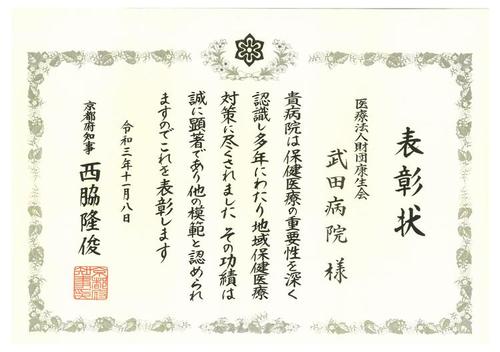 表彰状
医療法人財団康生会
武田病院 様
貴病院は保健医療の重要性を深く
認識し多年にわたり地域保健医療
対策に尽くされました その功績は
誠に顕著であり他の模範と認められ
ますのでこれを表彰します
令和三年十一月八日
京都府知事 西脇隆俊
京都府
知事之